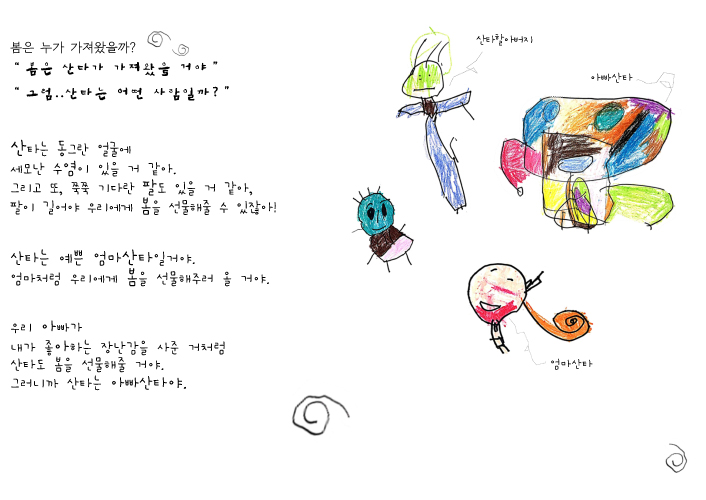 봄은 누가 가져왔을까?
“ 봄은 산타가 가져왔을 거야 ”
“ 그럼..산타는 어떤 사람일까? ”
산타는 동그란 얼굴에
세모난 수염이 있을 거 같아.
그리고 또, 쭉쭉 기다란 팔도 있을 거 같아,
팔이 길어야 우리에게 봄을 선물해줄 수 있잖아!
산타는 예쁜 엄마산타일거야.
엄마처럼 우리에게 봄을 선물해주러 올 거야.
우리 아빠가
내가 좋아하는 장난감을 사준 거처럼
산타도 봄을 선물해줄 거야.
그러니까 산타는 아빠산타야.
산타할아버지
아빠산타
엄마산타